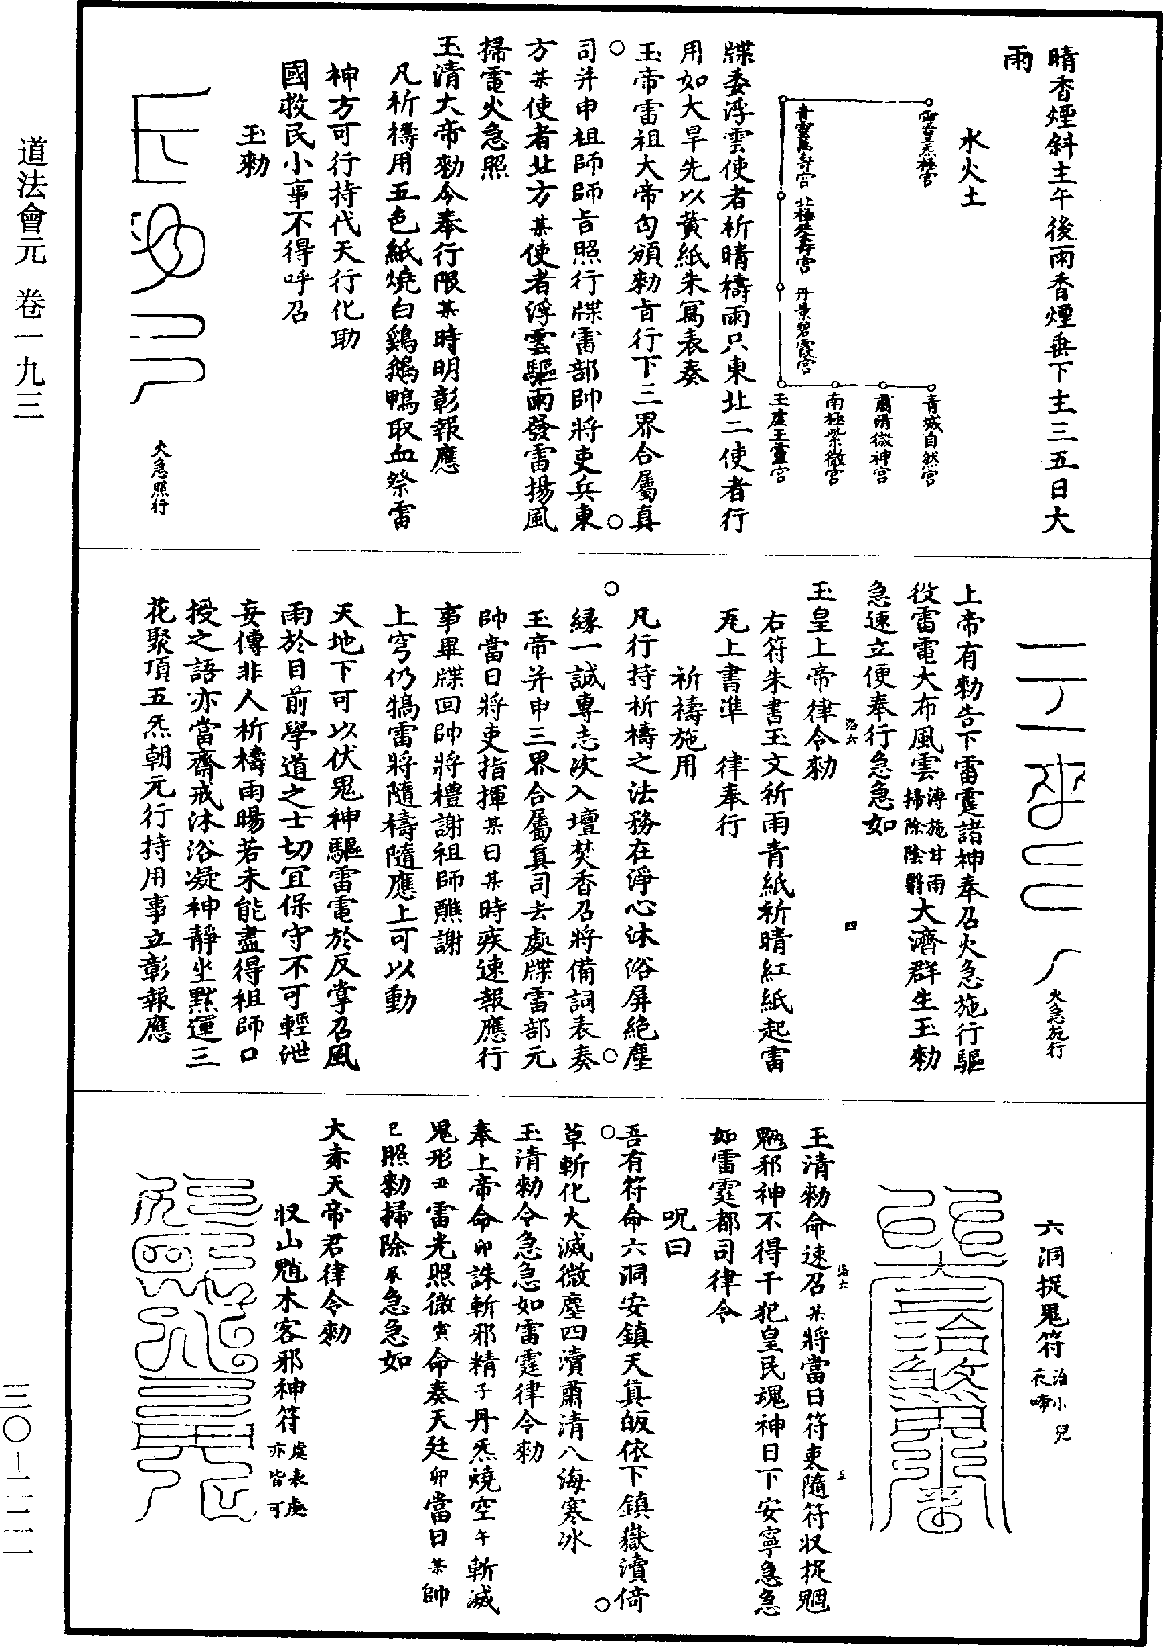 道法會元 卷一九三
晴香煙斜主午後雨香煙垂下主三五日大
雨
水火土
青城自然宮
肅清微神宮
南極紫微宮
玉虛玉靈宮
丹景碧霞宮
牒委浮雲使者祈晴禱雨只東北二使者行
用如大旱先以黃紙朱寫表奏
玉帝雷祖大帝白頒勑旨行下三界合屬真
司并申祖師師旨照行牒雷部帥將吏兵東
方某使者北方某使者浮雲驅雨發雷揚風
掃電火急照
玉清大帝勑令奉行限某時明彰報應
凡祈禱用五色紙燒白鷄鵝鴨取血祭雷
神方可行持代天行化助
國救民小事不得呼召
玉勑
火急照行
火急施行
上帝有勑告下雷霆諸神奉召火急施行驅
役雷電大布風雲溥施甘雨掃除陰翳大濟群生玉勑
急速立便奉行急急如
玉皇上帝律令勑
右符朱書玉文祈雨青紙祈晴紅紙起雷
炁上書準 律奉行
祈禱施用
凡行持祈禱之法務在淨心沐浴屏絶塵
緣一誠專志次入壇焚香召將備詞表奏
玉帝并申三界合屬真司去處牒雷部元
帥當日將吏指揮某日某時疾速報應行
事畢牒回帥將禮謝祖師醮謝
上穹仍犒雷將隨禱隨應上可以動
天地下可以伏鬼神驅雷電於反掌召風
雨於目前學道之士切宜保守不可輕泄
妄傳非人祈禱雨暘若未能盡得祖師口
授之語亦當齋戒沐浴凝神靜坐默運三
花聚頂五炁朝元行持用事立彰報應
六洞捉鬼符治小兒夜啼
玉清勑命速召某將當日符吏隨符収捉魍
魎邪神不得干犯皇民魂神日下安寧急急
如雷霆都司律令
呪曰
吾有符命六洞安鎮天真皈依下鎮嶽瀆倚
草斬化大滅微塵四瀆肅清八海寒冰
玉清勑令急急如雷霆律令勑
奉上帝命卯誅斬邪精子丹炁燒空午斬滅
鬼形丑雷光照徹寅命奏天廷卯當日某帥
巳照勑掃除急急如
大赤天帝君律令勑
収山魈木客邪神符虛表處亦皆可
三〇－二二一